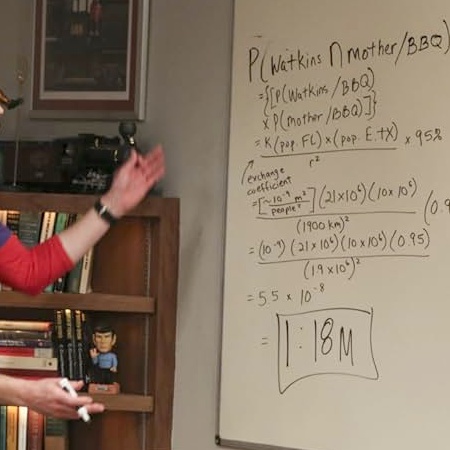 P(Watkins ∩ mother/BBQ)
={[P(Watkins/BBQ)
x P(mother/BBQ)]}
= K (pop. FL) x (pop. E. TX) x 95%
r²
exchange
coefficient
=[~10⁻⁹ m²/people²] (21x10⁶)(10x10⁶) (0.9
(1900 km)²
= (10⁻⁹)(21x10⁶)(10x10⁶)(0.95)
(1.9x10⁶)²
= 5.5 x 10⁻⁸
= 1:18M